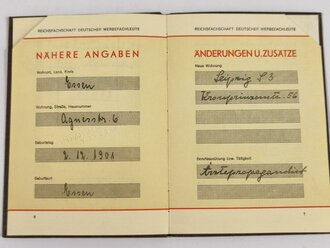 REICHSFACHSCHAFT DEUTSCHER WERBEFACHLEUTE
NÄHERE ANGABEN
Wohnort, Land, Kreis
Essen
Wohnung, Straße, Hausnummer
Agnesstr. 6
Geburtstag
2. 12. 1901
Geburtsort
Essen
8
REICHSFACHSCHAFT DEUTSCHER WERBEFACHLEUTE
ÄNDERUNGEN U. ZUSÄTZE
Neue Wohnung
Leipzig S 3
Kronprinzenstr. 56
Berufsausübung bzw. Tätigkeit
Ärztepropagandist
9